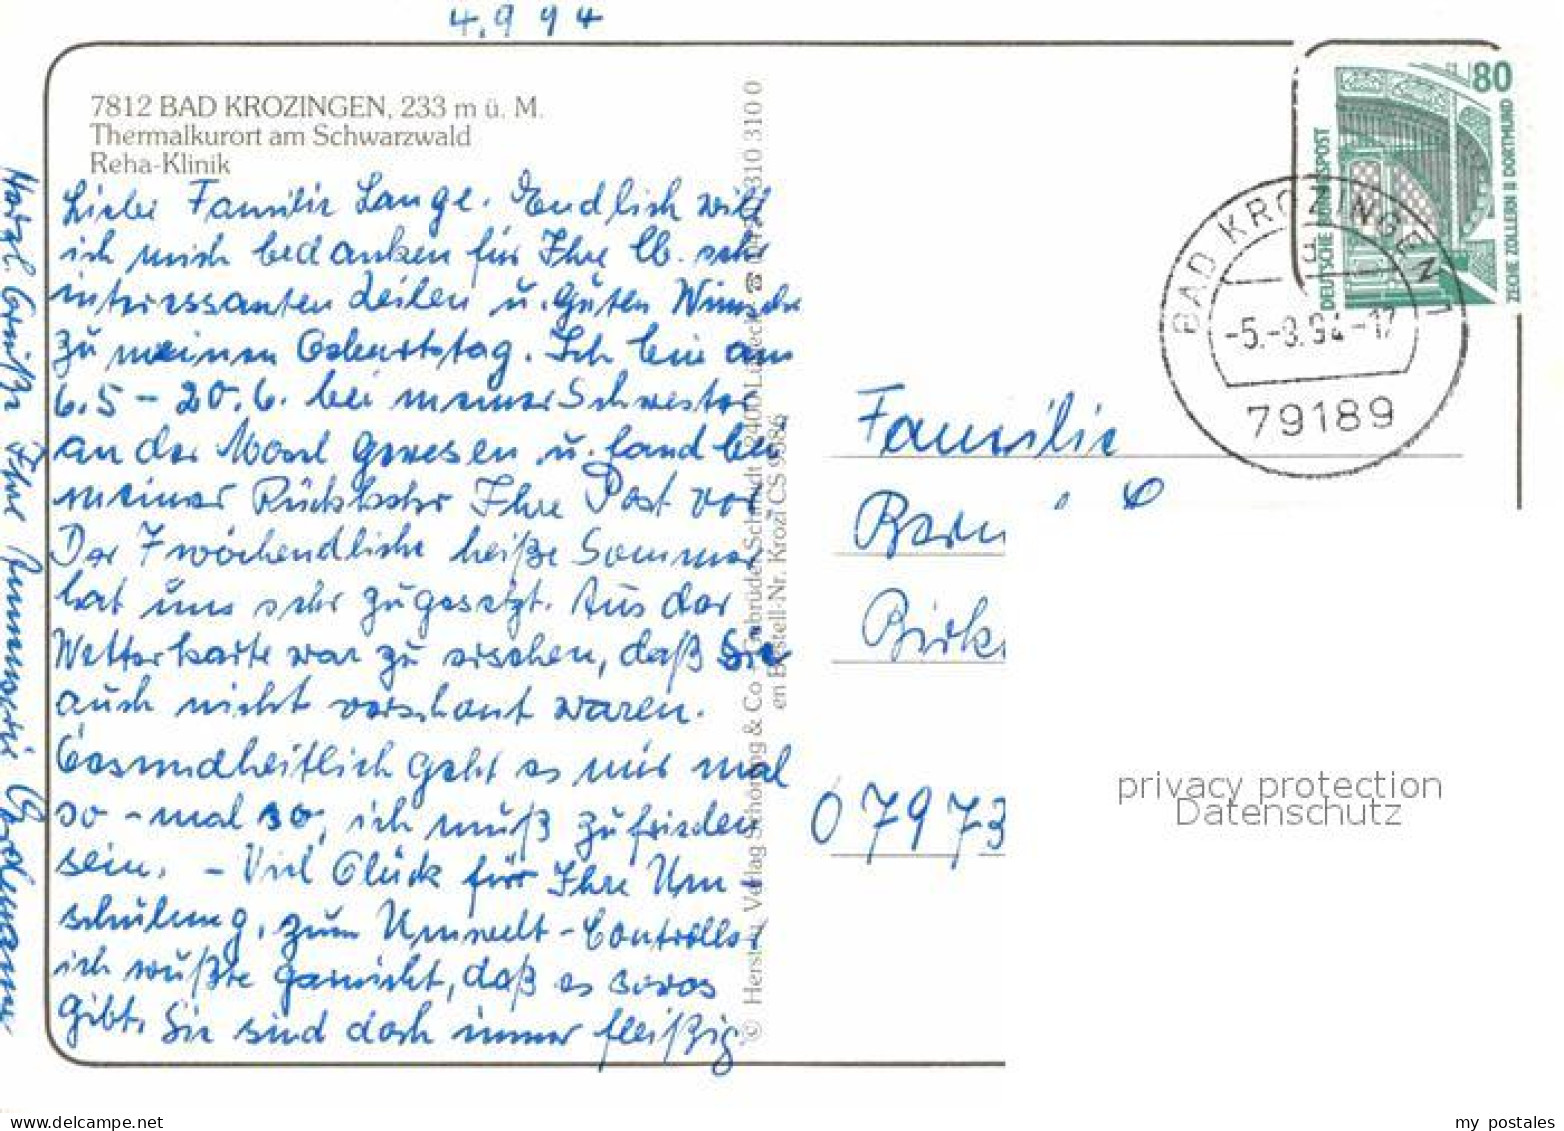 4.9 94
7812 BAD KROZINGEN, 233 m ü. M.
Thermalkurort am Schwarzwald
Reha-Klinik
Liebe Familie Lange. Endlich will
ich mich bedanken für Ihre lb. sehr
interessanten Zeilen u. guten Wünsche
zu meinem Geburtstag. Ich bin am
6.5 - 20.6. bei meiner Schwester
an der Mosel gewesen u. fand bei
meiner Rückkehr Ihre Post vor
Der 7 wöchendliche heiße Sommer
hat uns sehr zugesetzt. Aus der
Wetterkarte war zu ersehen, daß Sie
auch nicht verschont waren.
Gesundheitlich geht es mir mal
so - mal so, ich muß zufrieden
sein. - Viel Glück für Ihre Um-
schulung, zum Umwelt-Controller
ich wußte garnicht, daß es sowas
gibt. Sie sind doch immer fleißig.
Herzl. Grüße Ihre Annemarie
© Herst. u. Verlag Schöning & Co + Gebrüder Schmidt 2400 Lübeck 310 310 0
en Bestell-Nr. Krozi CS 9586
80
DEUTSCHE BUNDESPOST
ZECHE ZOLLERN II DORTMUND
BAD KROZINGEN 1
d
-5.-9.94-17
79189
Familie
07973
privacy protection
Datenschutz
my postales